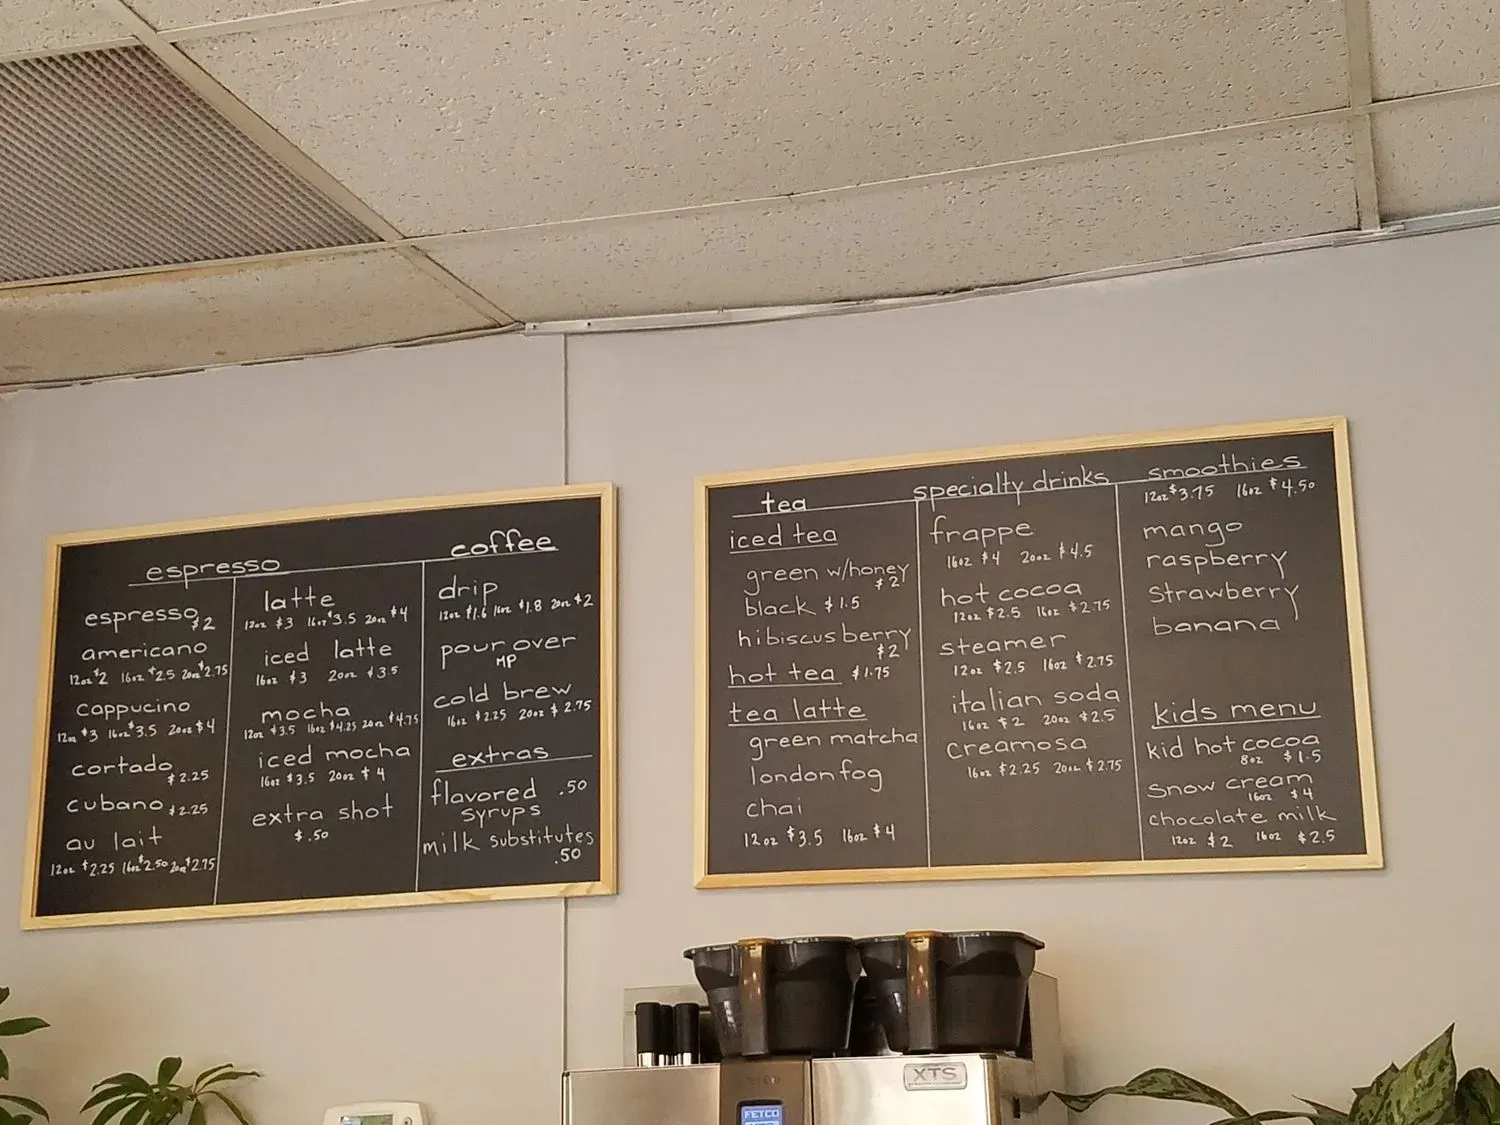 espresso
espresso $2
americano
12oz $2 16oz $2.5 20oz $2.75
cappucino
12oz $3 16oz $3.5 20oz $4
cortado
$2.25
cubano $2.25
au lait
12oz $2.25 16oz $2.50 20oz $2.75
latte
12oz $3 16oz $3.5 20oz $4
iced latte
16oz $3 20oz $3.5
mocha
12oz $3.5 16oz $4.25 20oz $4.75
iced mocha
16oz $3.5 20oz $4
extra shot
$.50
coffee
drip
12oz $1.6 16oz $1.8 20oz $2
pour over
MP
cold brew
16oz $2.25 20oz $2.75
extras
flavored .50
syrups
milk substitutes
.50
tea
iced tea
green w/honey
$2
black $1.5
hibiscus berry
$2
hot tea $1.75
tea latte
green matcha
london fog
chai
12oz $3.5 16oz $4
specialty drinks
frappe
16oz $4 20oz $4.5
hot cocoa
12oz $2.5 16oz $2.75
steamer
12oz $2.5 16oz $2.75
italian soda
16oz $2 20oz $2.5
creamosa
16oz $2.25 20oz $2.75
smoothies
12oz $3.75 16oz $4.50
mango
raspberry
strawberry
banana
kids menu
kid hot cocoa
8oz $1.5
snow cream
16oz $4
chocolate milk
12oz $2 16oz $2.5
XTS
FETCO